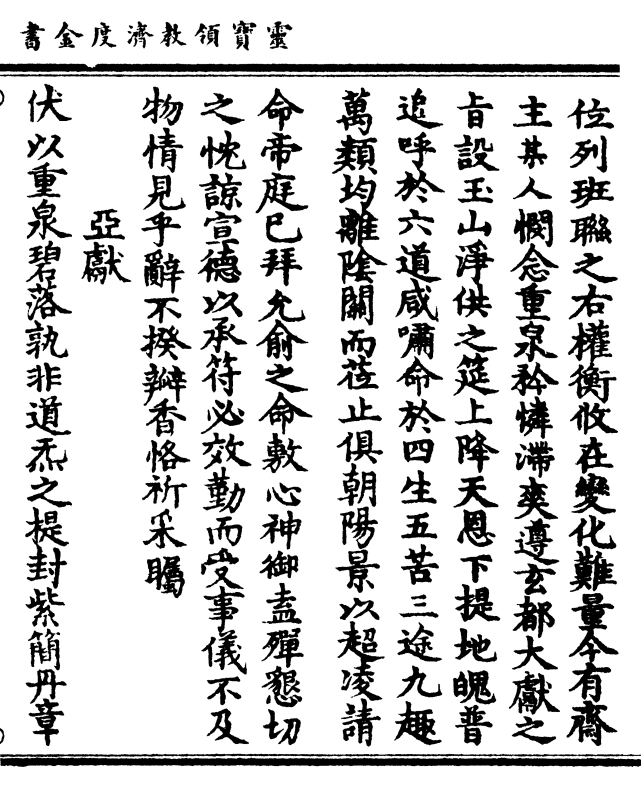 靈寶領教濟度金書
位列班聯之右權衡攸在變化難量今有齋
主某人憫念重泉矜憐滯爽遵玄都大獻之
旨設玉山淨供之筵上降天恩下提地魄普
追呼於六道咸嘯命於四生五苦三途九趣
萬類均離陰關而蒞止俱朝陽景以超凌請
命帝庭巳拜允俞之命敷心神御盍殫懇切
之忱諒宣德以承符必效勤而受事儀不及
物情見乎辭不揆瓣香恪祈采矚
亞獻
伏以重泉碧落孰非道炁之提封紫簡丹章